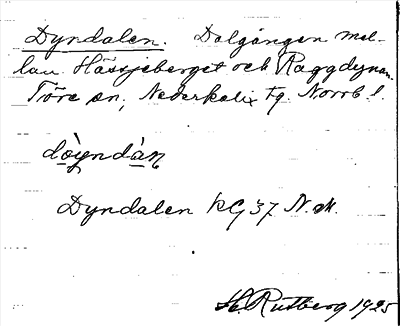 Dyndalen. Dalgången mel-
lan Hässjeberget och Raggdynan.
Töre sn, Nederkalix tg. Norrb. l.
dòyndàn
Dyndalen kG 37 N. M.
H. Rutberg 1925